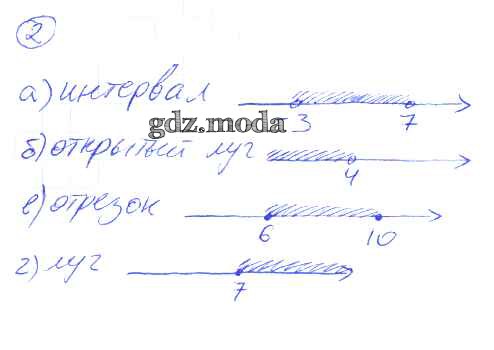 2
а) интервал
3 7
gdz.moda
б) открытый луч
4
в) отрезок
6 10
г) луч
7